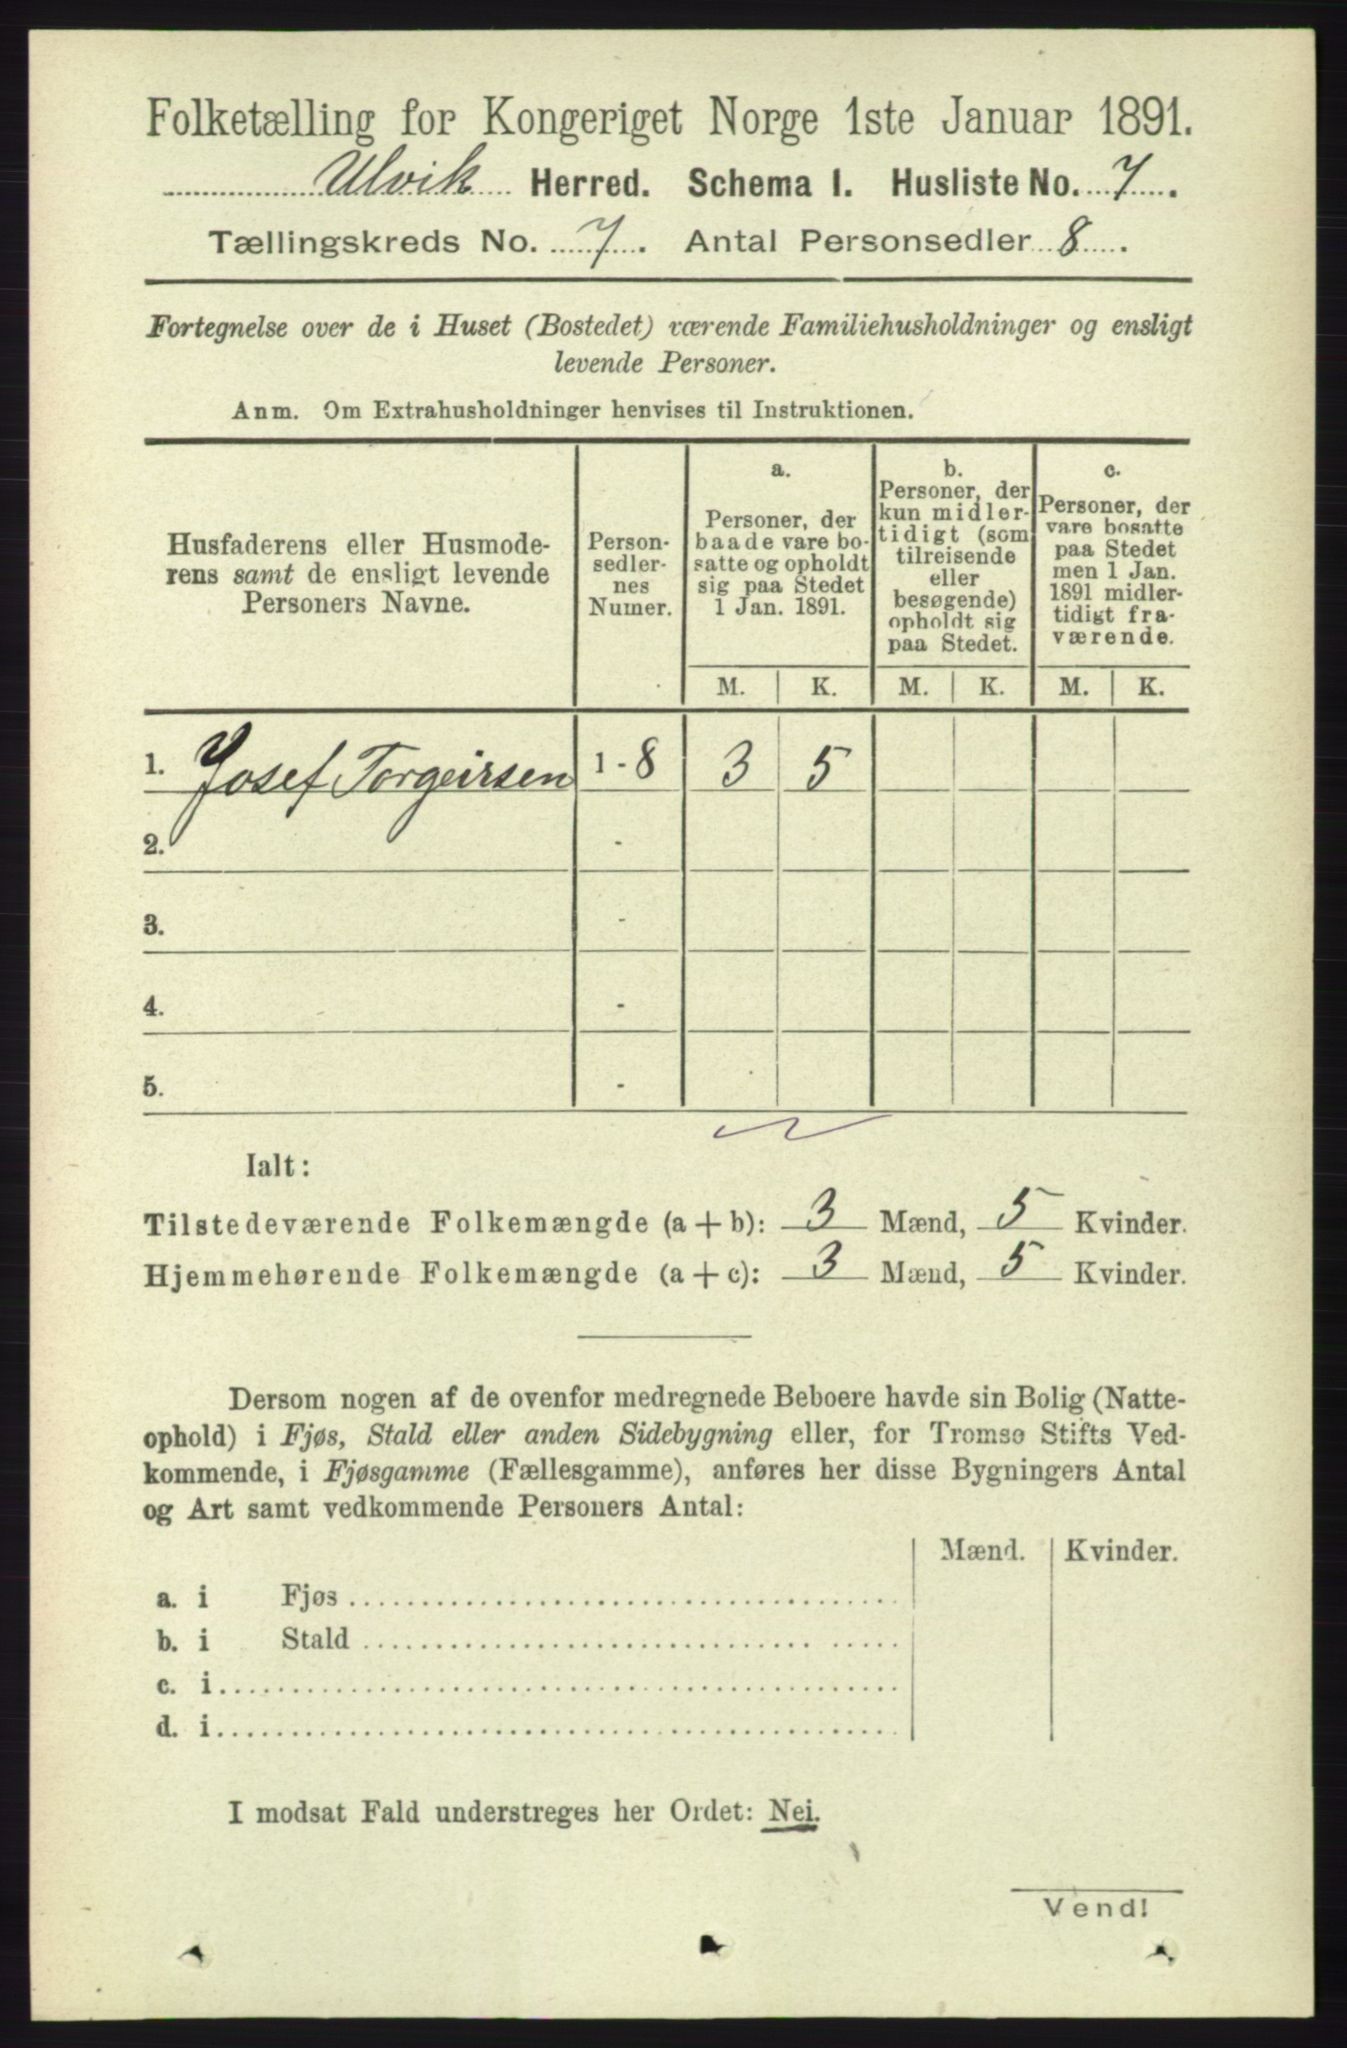 Folketælling for Kongeriget Norge 1ste Januar 1891.
Ulvik Herred. Schema I. Husliste No. 7.
Tællingskreds No. 7. Antal Personsedler 8.
Fortegnelse over de i Huset (Bostedet) værende Familiehusholdninger og ensligt
levende Personer.
Anm. Om Extrahusholdninger henvises til Instruktionen.
Husfaderens eller Husmode-
rens samt de ensligt levende
Personers Navne.
Person-
sedler-
nes
Numer.
a.
Personer, der
baade vare bo-
satte og opholdt
sig paa Stedet
1 Jan. 1891.
b.
Personer, der
kun midler-
tidigt (som
tilreisende
eller
besøgende)
opholdt sig
paa Stedet.
c.
Personer, der
vare bosatte
paa Stedet
men 1 Jan.
1891 midler-
tidigt fra-
værende.
M. K. M. K. M. K.
1. Josef Torgeirsen 1 - 8 3 5
2. -
3. -
4. -
5. -
Ialt:
Tilstedeværende Folkemængde (a + b): 3 Mænd, 5 Kvinder.
Hjemmehørende Folkemængde (a + c): 3 Mænd, 5 Kvinder.
Dersom nogen af de ovenfor medregnede Beboere havde sin Bolig (Natte-
ophold) i Fjøs, Stald eller anden Sidebygning eller, for Tromsø Stifts Ved-
kommende, i Fjøsgamme (Fællesgamme), anføres her disse Bygningers Antal
og Art samt vedkommende Personers Antal:
Mænd. Kvinder.
a. i Fjøs
b. i Stald
c. i
d. i
I modsat Fald understreges her Ordet: Nei.
Vend!